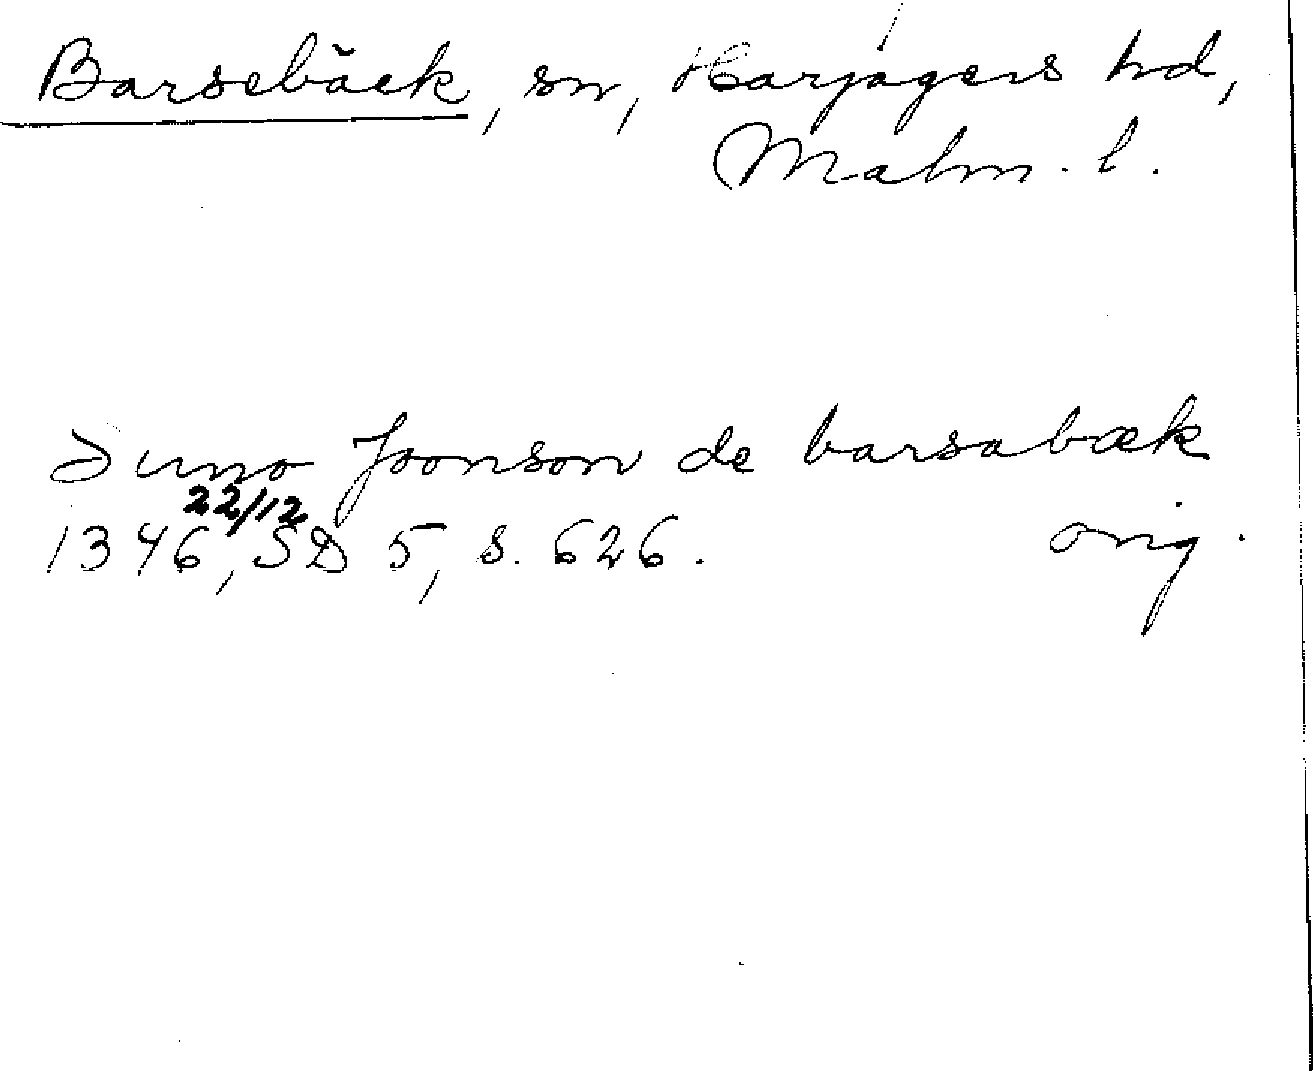 Barsebäck, sn, Harjagers hd,
Malm. l.
Suno Joonson de barsabæk
22/12
1346, SD 5, s. 626. orig.